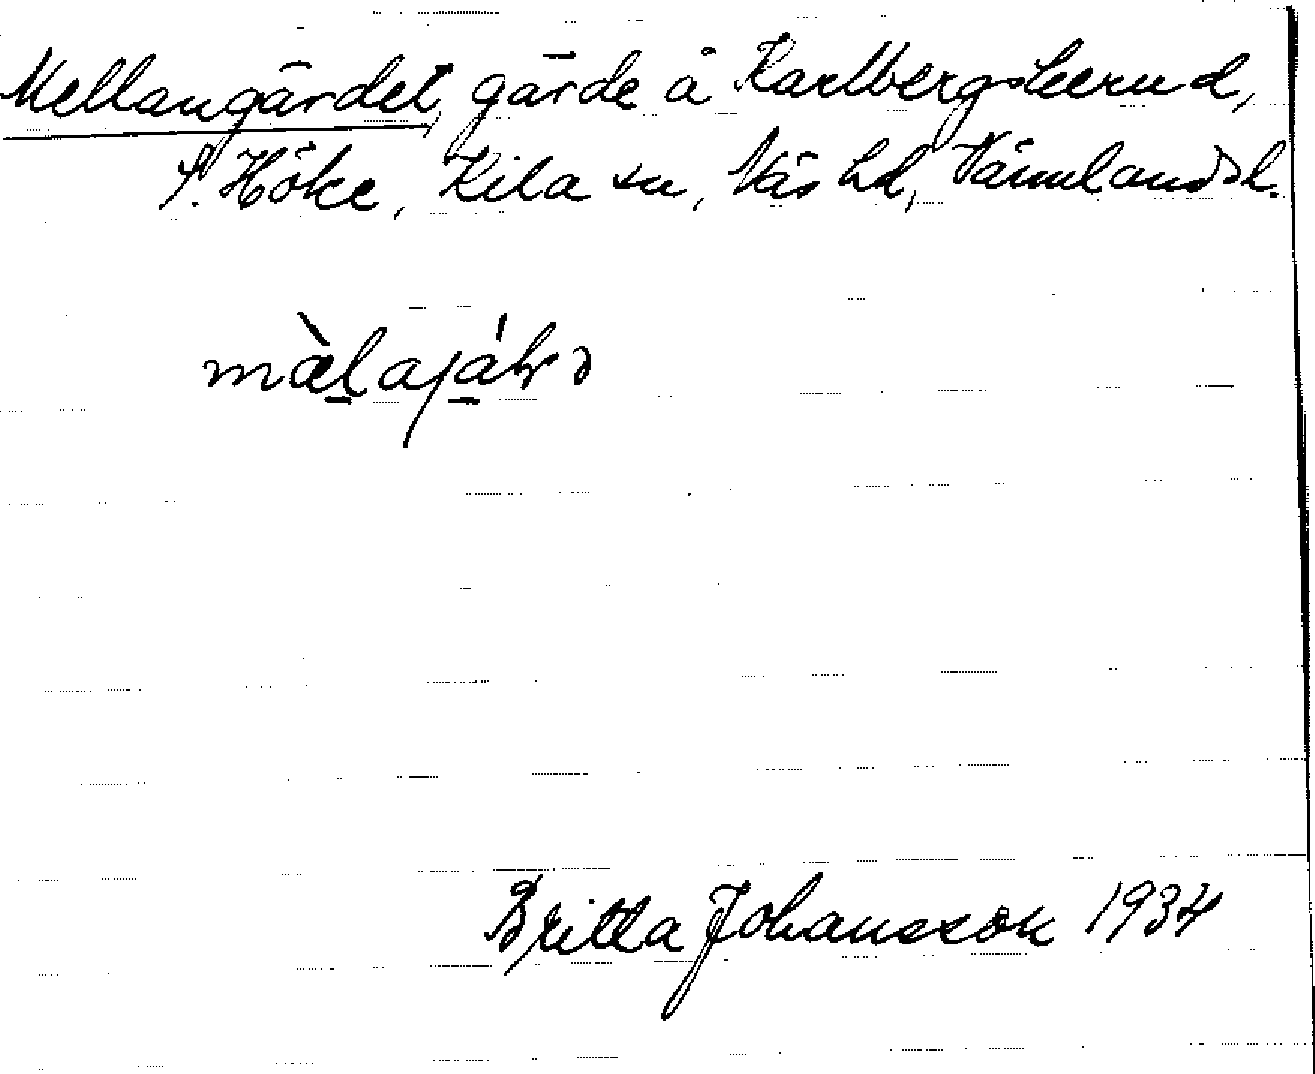 Mellangärdet, gärde å Karlbergskerud,
S. Höke, Kila sn, Näs hd, Värmlands l.
Britta Johansson 1934